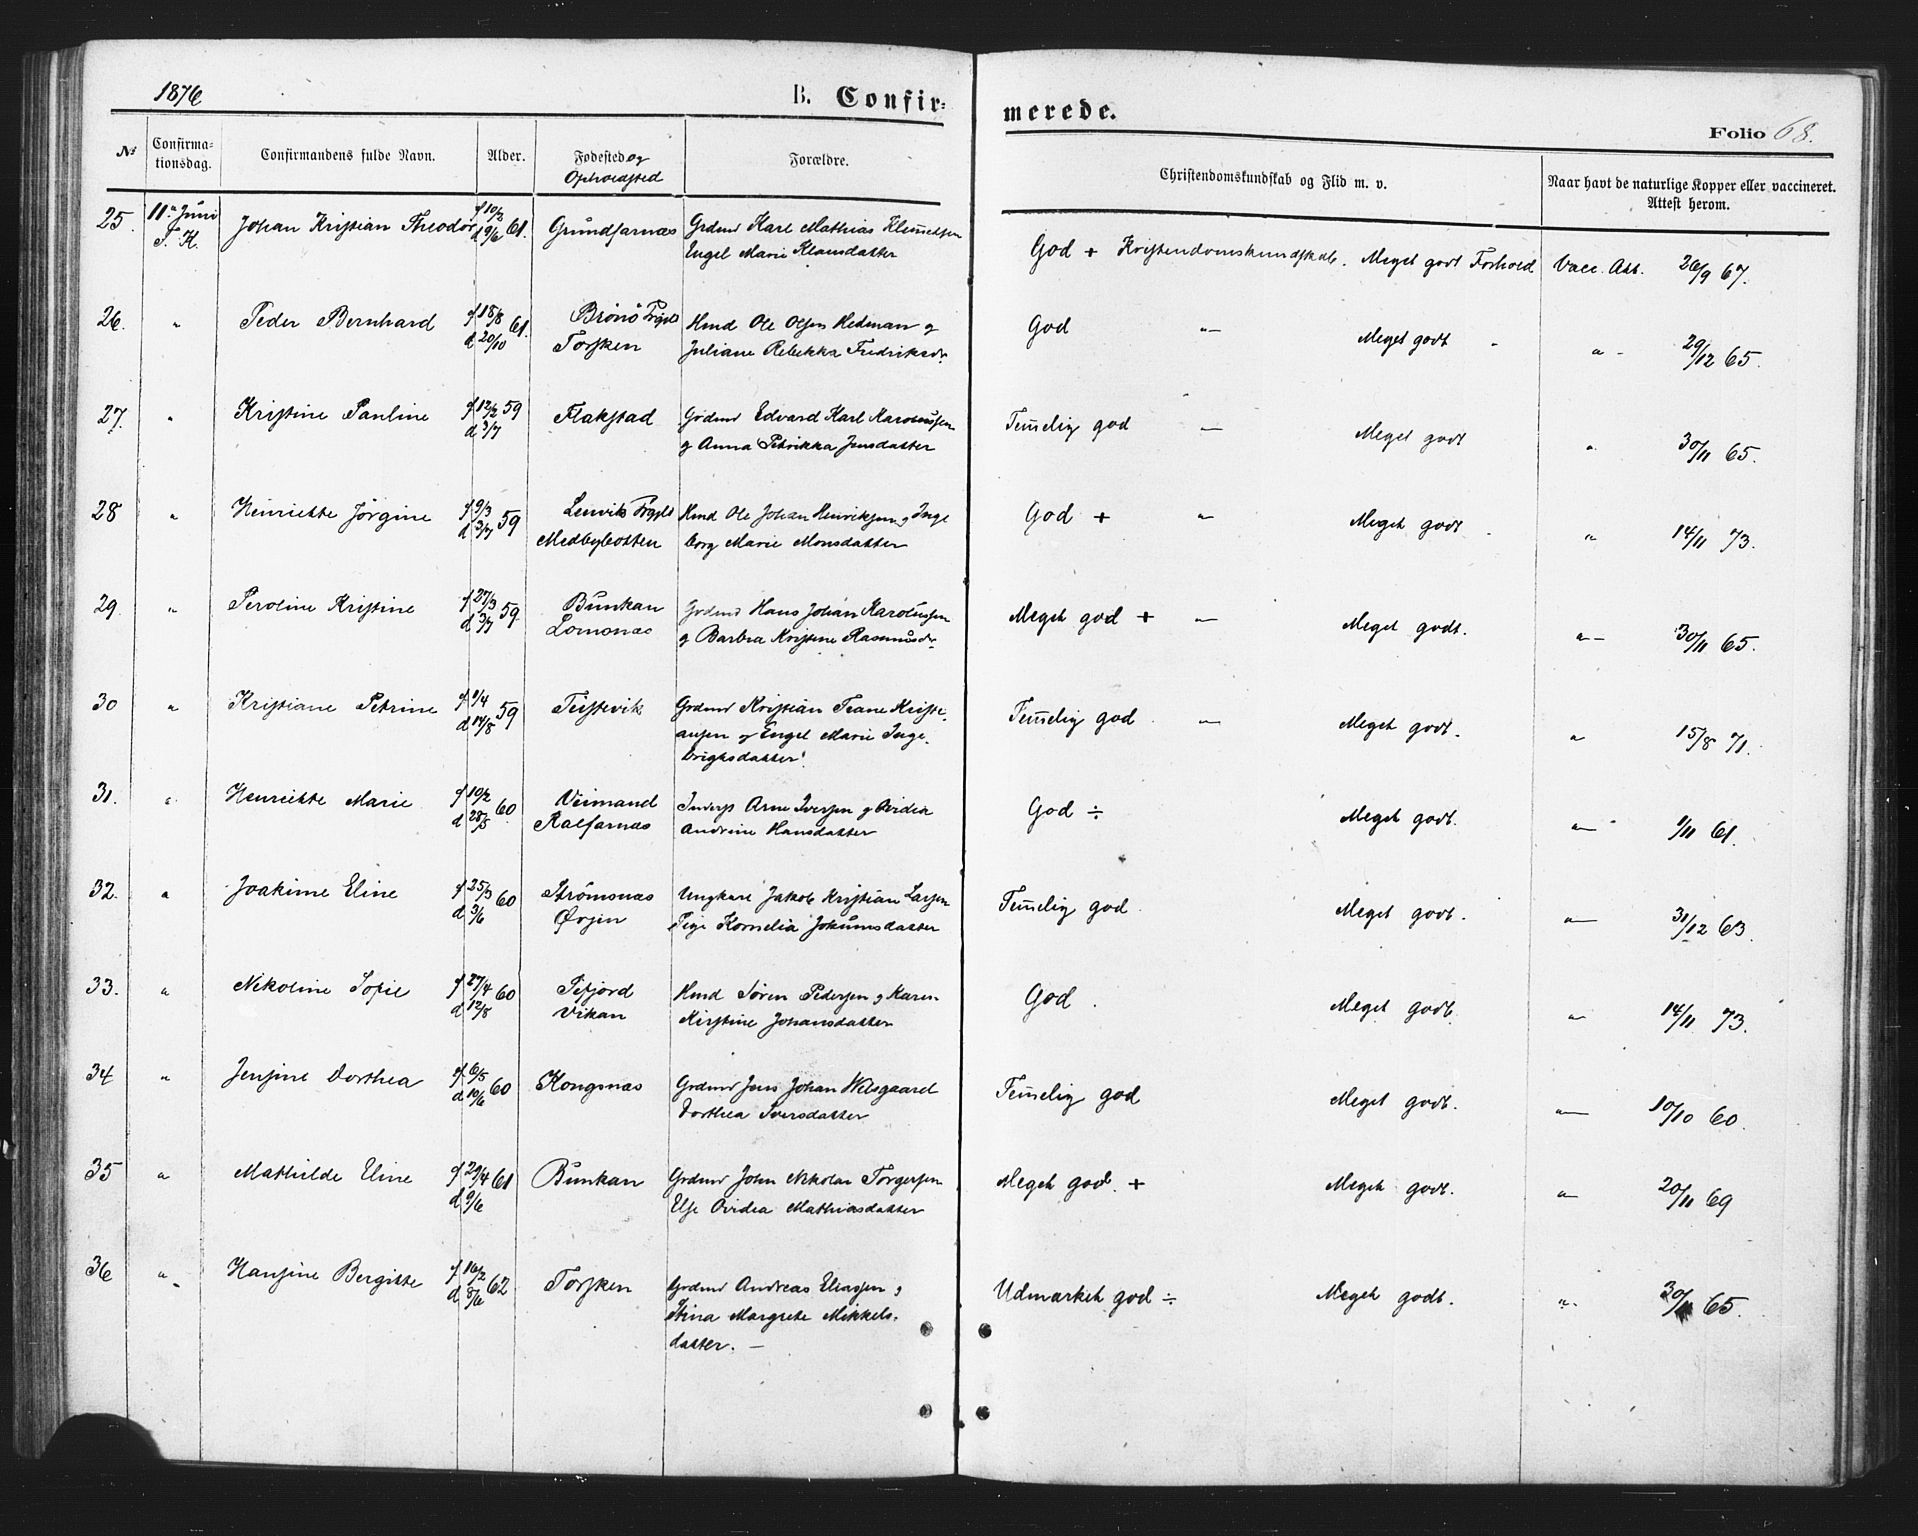 1876
B. Confirmerede.
Folio 68.
No
Confirma-
tionsdag.
Confirmandens fulde Navn.
Alder.
Fødested og
Opholdsted
Forældre.
Christendomskundskab og Flid m. v.
Naar havt de naturlige Kopper eller vaccineret.
Attest herom.
25. 11. Juni Johan Kristian Theodor f 10/2 61. Grundfarnæs Grdmd Karl Mathias Klemetsen God + Kristendomskundskab. Meget godt Forhold Vacc. Att. 26/9 67.
T. K. d 9/6 Engel Marie Klausdatter
26. " Peder Bernhard f 18/8 61. Brönö Prgjld Hmd Ole Olsen Hedman og God " Meget godt " 29/12 65.
d 20/10 Torsken Juliane Rebekka Fredriksdr.
27. " Kristine Pauline f 12/2 59 Flakstad Grdmd Edvard Karl Karolussen Temelig god " Meget godt " 30/11 65.
d 3/7 og Anna Petrikka Jensdatter
28 " Henriette Jørgine f 9/3 59 Lenvik Prgjld Hmd Ole Johan Henriksen og Inge God + " Meget godt " 14/11 73.
d 3/7 Medbybotten borg Marie Monsdatter
29. " Peroline Kristine f 27/3 59 Bunkan Grdmd Hans Johan Karolussen Meget god + " Meget godt. " 30/11 65.
d 3/7 Lomonæs og Barbra Kristine Rasmusdr.
30 " Kristiane Petrine f 1/4 59 Teistevik Grdmd Kristian Teane Kristi- Temelig god " Meget godt. " 15/8 71.
d 14/8 ansen og Engel Marie Inge-
brigtsdatter
31. " Henriette Marie f 10/2 60 Veimand Inderst Arne Iversen og Ovidia God ÷ Meget godt. " 1/11 61.
d 28/5 Kalfarnæs Andrine Hansdatter
32. " Joakime Eline f 25/3 60 Strömsnæs Ungkarl Jakob Kristian Larsen Temelig god. Meget godt. " 31/12 63.
d 3/6 Ørjin Pige Kornelia Jokumsdatter
33. " Nikoline Sofie f 27/4 60 Sifjord Hmd Sören Pedersen og Karen God. Meget godt. " 14/11 73.
d 12/8 Vikan Kirstine Johansdatter
34 " Jensine Dorthea f 6/5 60 Kongsnæs Grdmd Jens Johan Wilsgaard Temelig god Meget godt. " 10/10 60.
d 10/6 Dorthea Iversdatter
35 " Mathilde Eline f 29/4 61 Bunkan Grdmd John Nikolai Torgersen Meget god. + Meget godt. " 20/11 69
d 9/6 Else Ovidea Mathiasdatter
36 " Hansine Bergitte f 16/2 62 Torsken Grdmd Andreas Eliassen og Udmærket god ÷ Meget godt. " 30/11 65.
d 8/6 Stina Margrete Mikkels-
datter. —